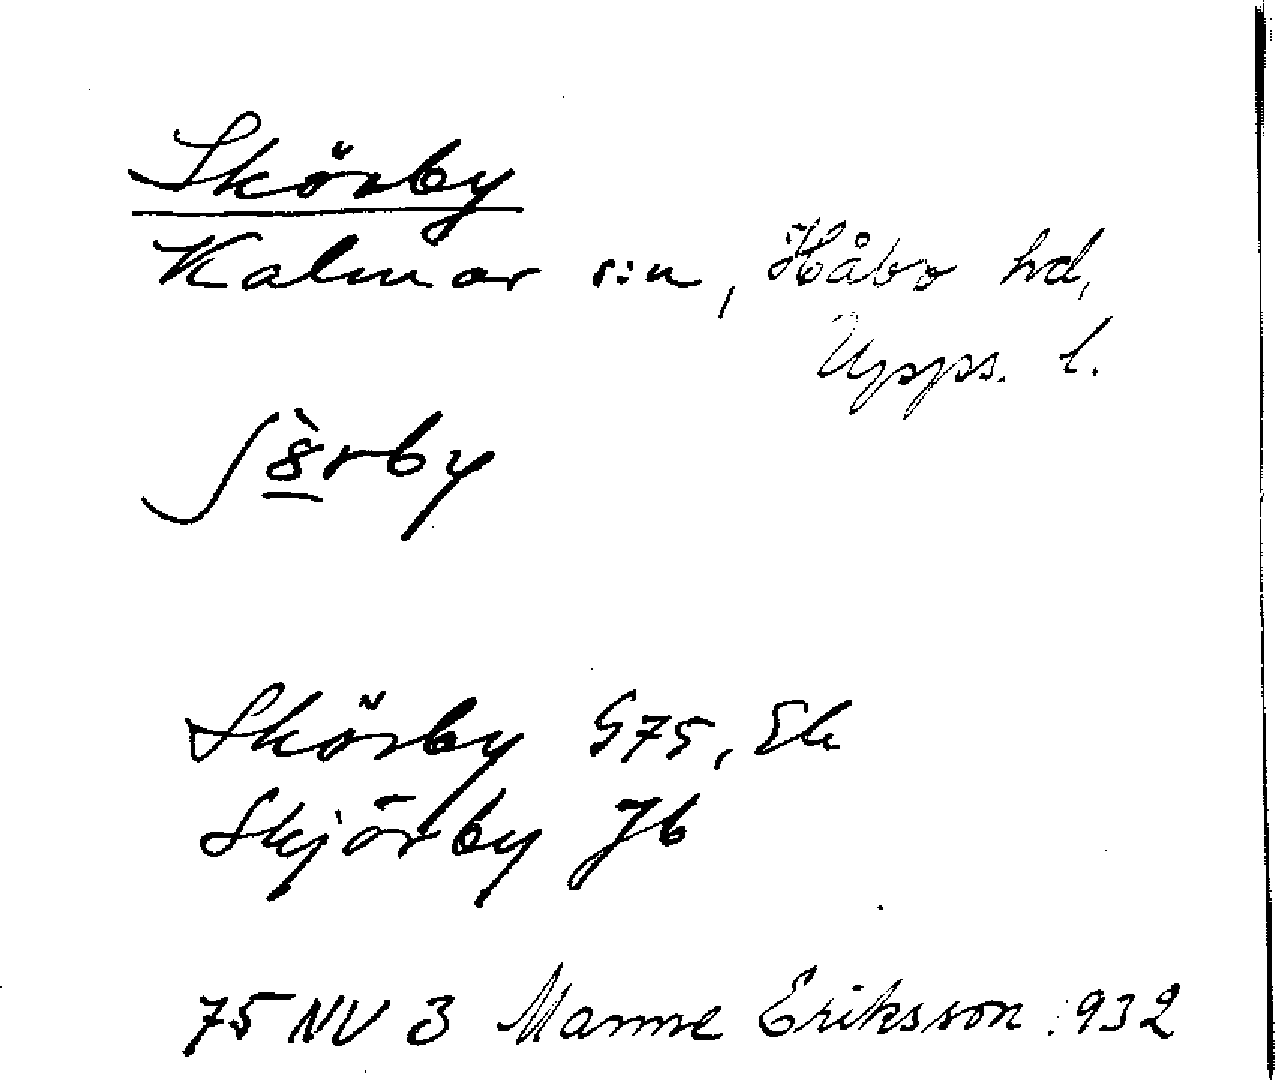 Skörby
Kalmar s:n, Håbo hd,
Upps. l.
ʃö̀rby
Skörby G75, Ek
Skjörby Jb
75 NV 3 Manne Eriksson 1932